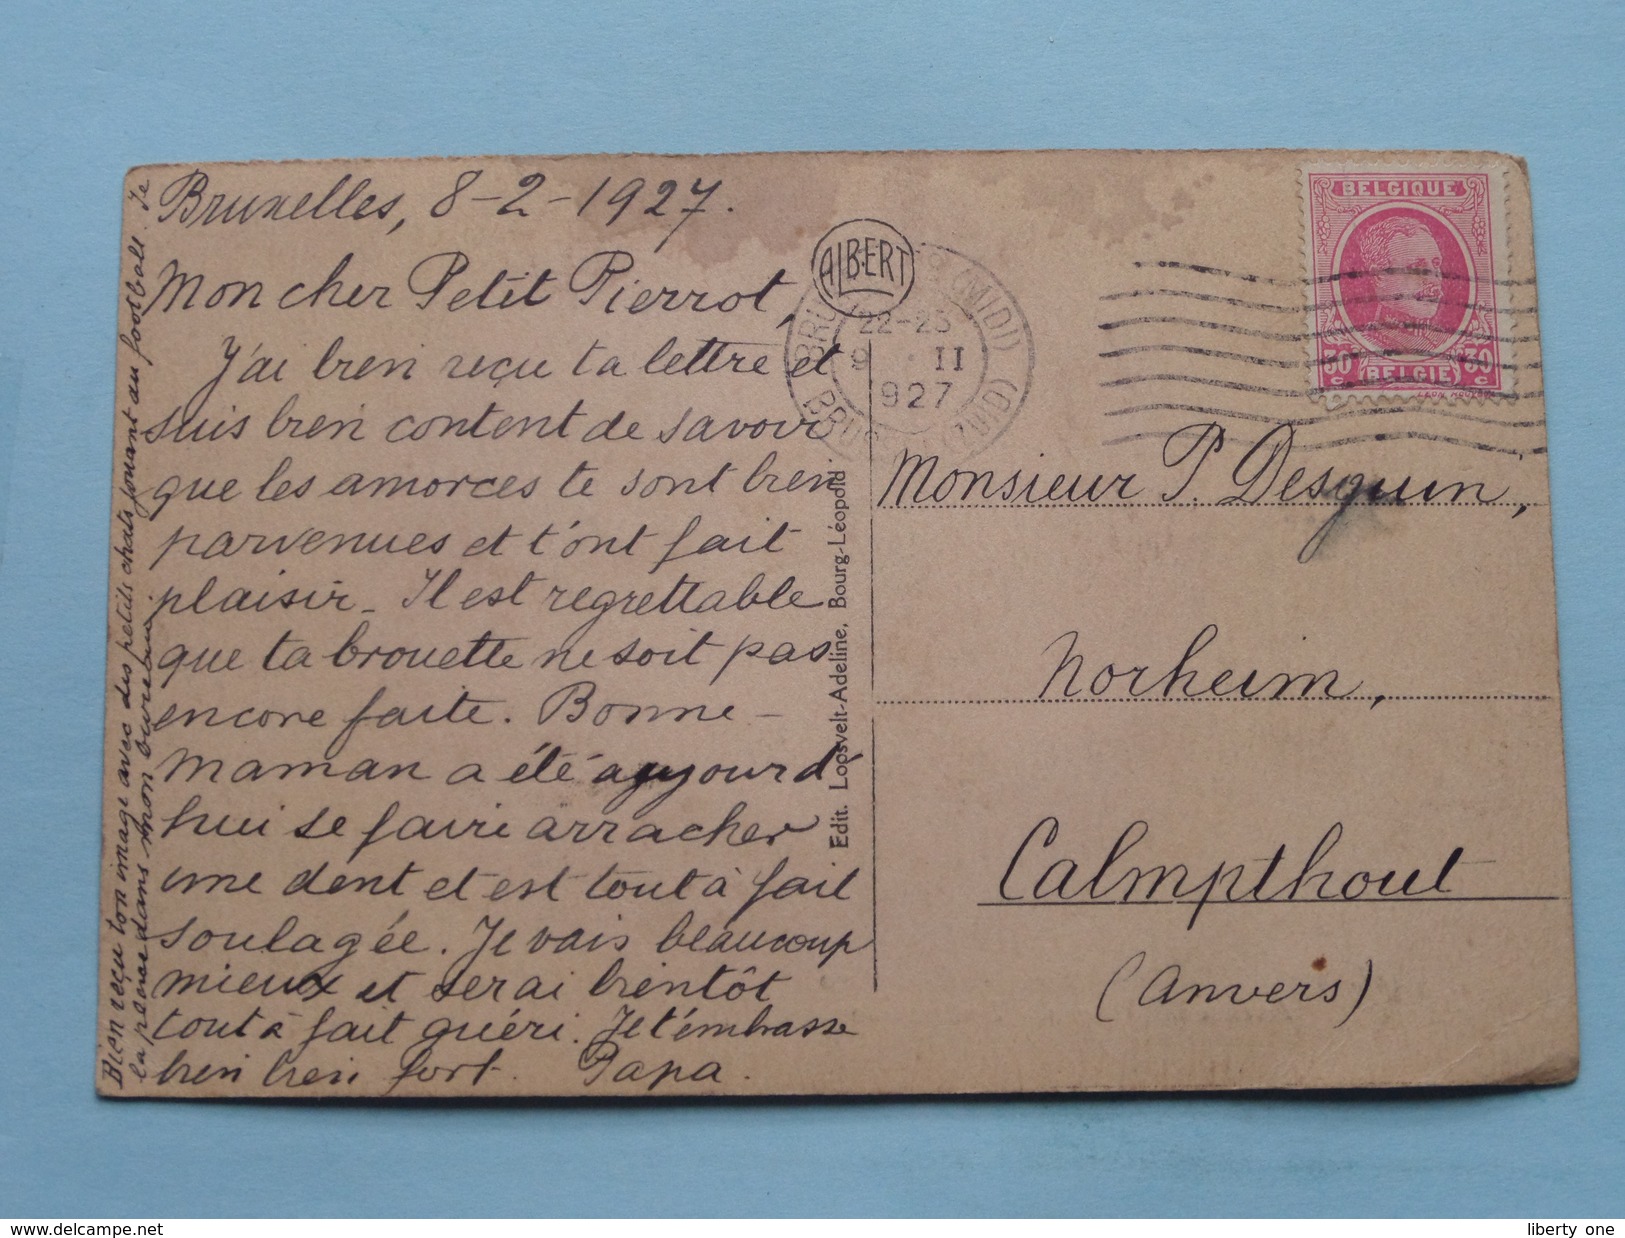 Bruxelles, 8-2-1927.
Mon cher Petit Pierrot,
J'ai bien reçu ta lettre et
suis bien content de savoir
que les amorces te sont bien
parvenues et t'ont fait
plaisir_ Il est regrettable
que ta brouette ne soit pas
encore faite. Bonne-
maman a été aujourd'
hui se faire arracher
une dent et est tout à fait
soulagée. Je vais beaucoup
mieux et serai bientôt
tout à fait guéri. Je t'embrasse
bien bien fort. Papa.
Bien reçu ton image avec des petits chats jouant au football. Je
la place dans mon bureau.
ALBERT
22-23
9 II
927
(MIDI)
(ZUID)
BELGIQUE
30 30
c c
BELGIE
Edit. Loosvelt-Adeline, Bourg-Léopold.
Monsieur P. Desguin,
Norheim,
Calmpthout
(Anvers)
delcampe.net
liberty_one